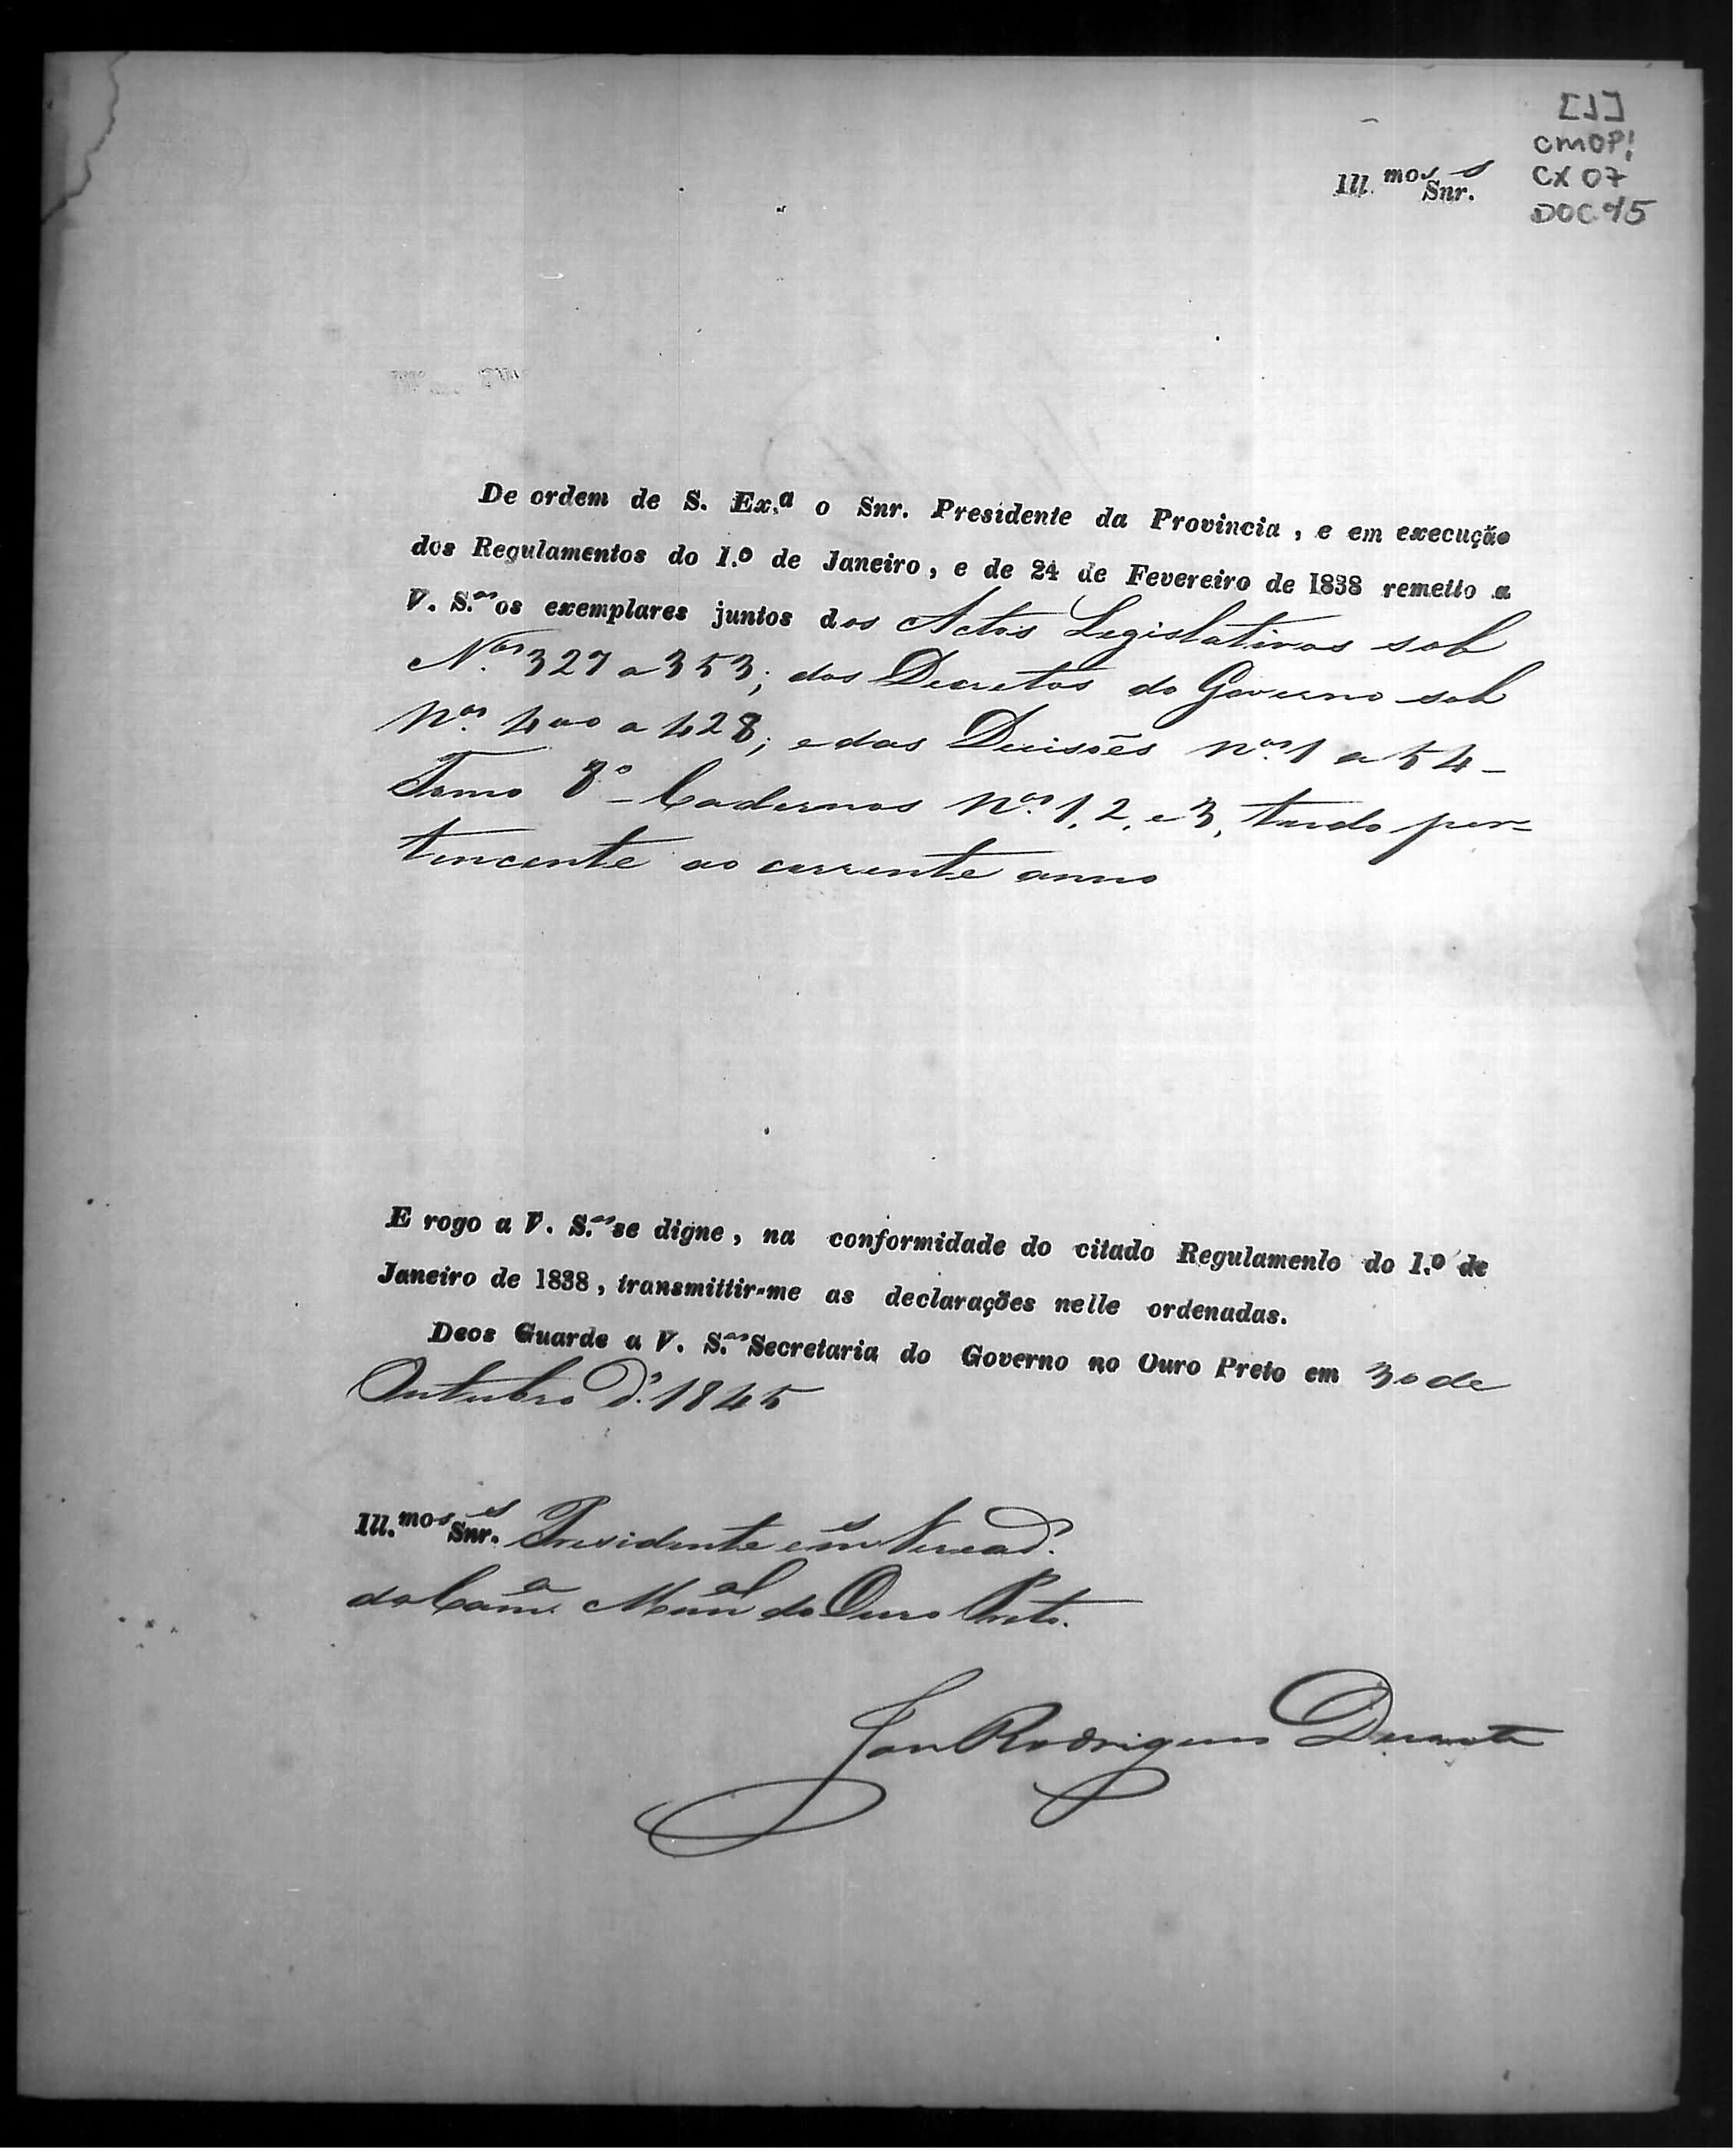 [1]
CMOP!
CX 07
DOC 45
Ill.mos Snr.s
De ordem de S. Ex.a o Snr. Presidente da Provincia, e em execução
dos Regulamentos do 1.º de Janeiro, e de 24 de Fevereiro de 1838 remetto a
V. S.as os exemplares juntos dos Actos Legislativos sob
N.os 327 a 353; dos Decretos do Governo sob
N.os 400 a 428; e das Decisões n.os 1 a 54 -
Tomo 8º - Cadernos N.os 1, 2, e 3, tudo per=
tencente ao corrente anno
E rogo a V. S.as se digne, na conformidade do citado Regulamento do 1.º de
Janeiro de 1838, transmittir-me as declarações nelle ordenadas.
Deos Guarde a V. S.as Secretaria do Governo no Ouro Preto em 30 de
Outubro d' 1845
Ill.mos Snr.es Presidente e Veread.es
da Cam.a Mun.al do Ouro Preto.
Rodrigues Duarte